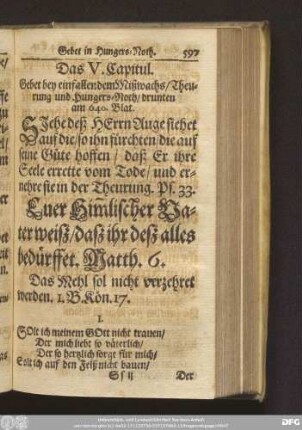 Gebet in Hungers-Noth. 597
Das V. Capitul.
Gebet bey einfallendem Mißwachs/Theu-
rung und Hungers-Noth/drunten
am 640. Blat.
Siehe deß HErrn Auge siehet
auf die/so ihn fürchten die auf
seine Güte hoffen/ daß Er ihre
Seele errette vom Tode/ und er-
nehre sie in der Theurung. Ps. 33.
Euer Him̃lischer Va-
ter weiß/daß ihr deß alles
bedürffet. Matth. 6.
Das Mehl sol nicht verzehret
werden. 1. B. Kön. 17.
I.
SOlt ich meinem GOtt nicht trauen/
Der mich liebt so väterlich/
Der so hertzlich sorgt für mich/
Solt ich auf den Felß nicht bauen/
Der
DFG